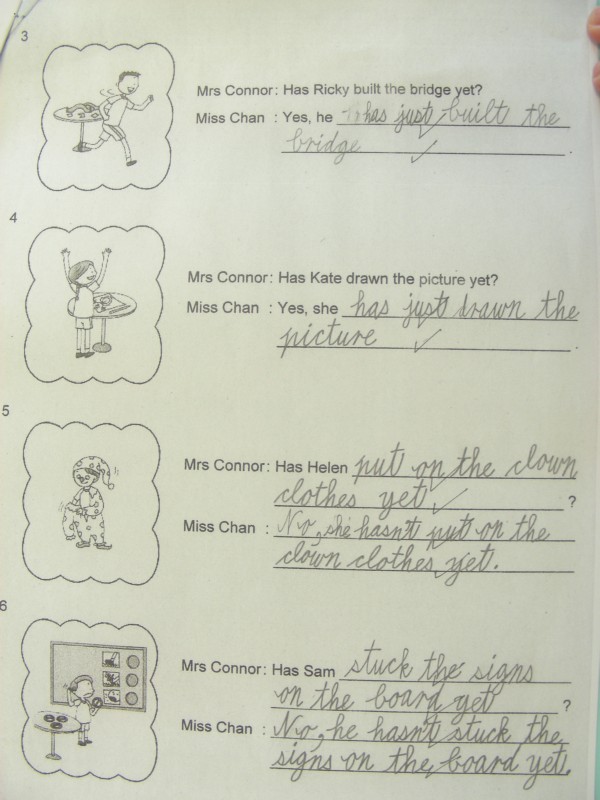 3
Mrs Connor: Has Ricky built the bridge yet?
Miss Chan : Yes, he has just built the
bridge .
4
Mrs Connor: Has Kate drawn the picture yet?
Miss Chan : Yes, she has just drawn the
picture .
5
Mrs Connor: Has Helen put on the clown
clothes yet ?
Miss Chan : No, she hasn't put on the
clown clothes yet.
6
Mrs Connor: Has Sam stuck the signs
on the board yet ?
Miss Chan : No, he hasn't stuck the
signs on the board yet.